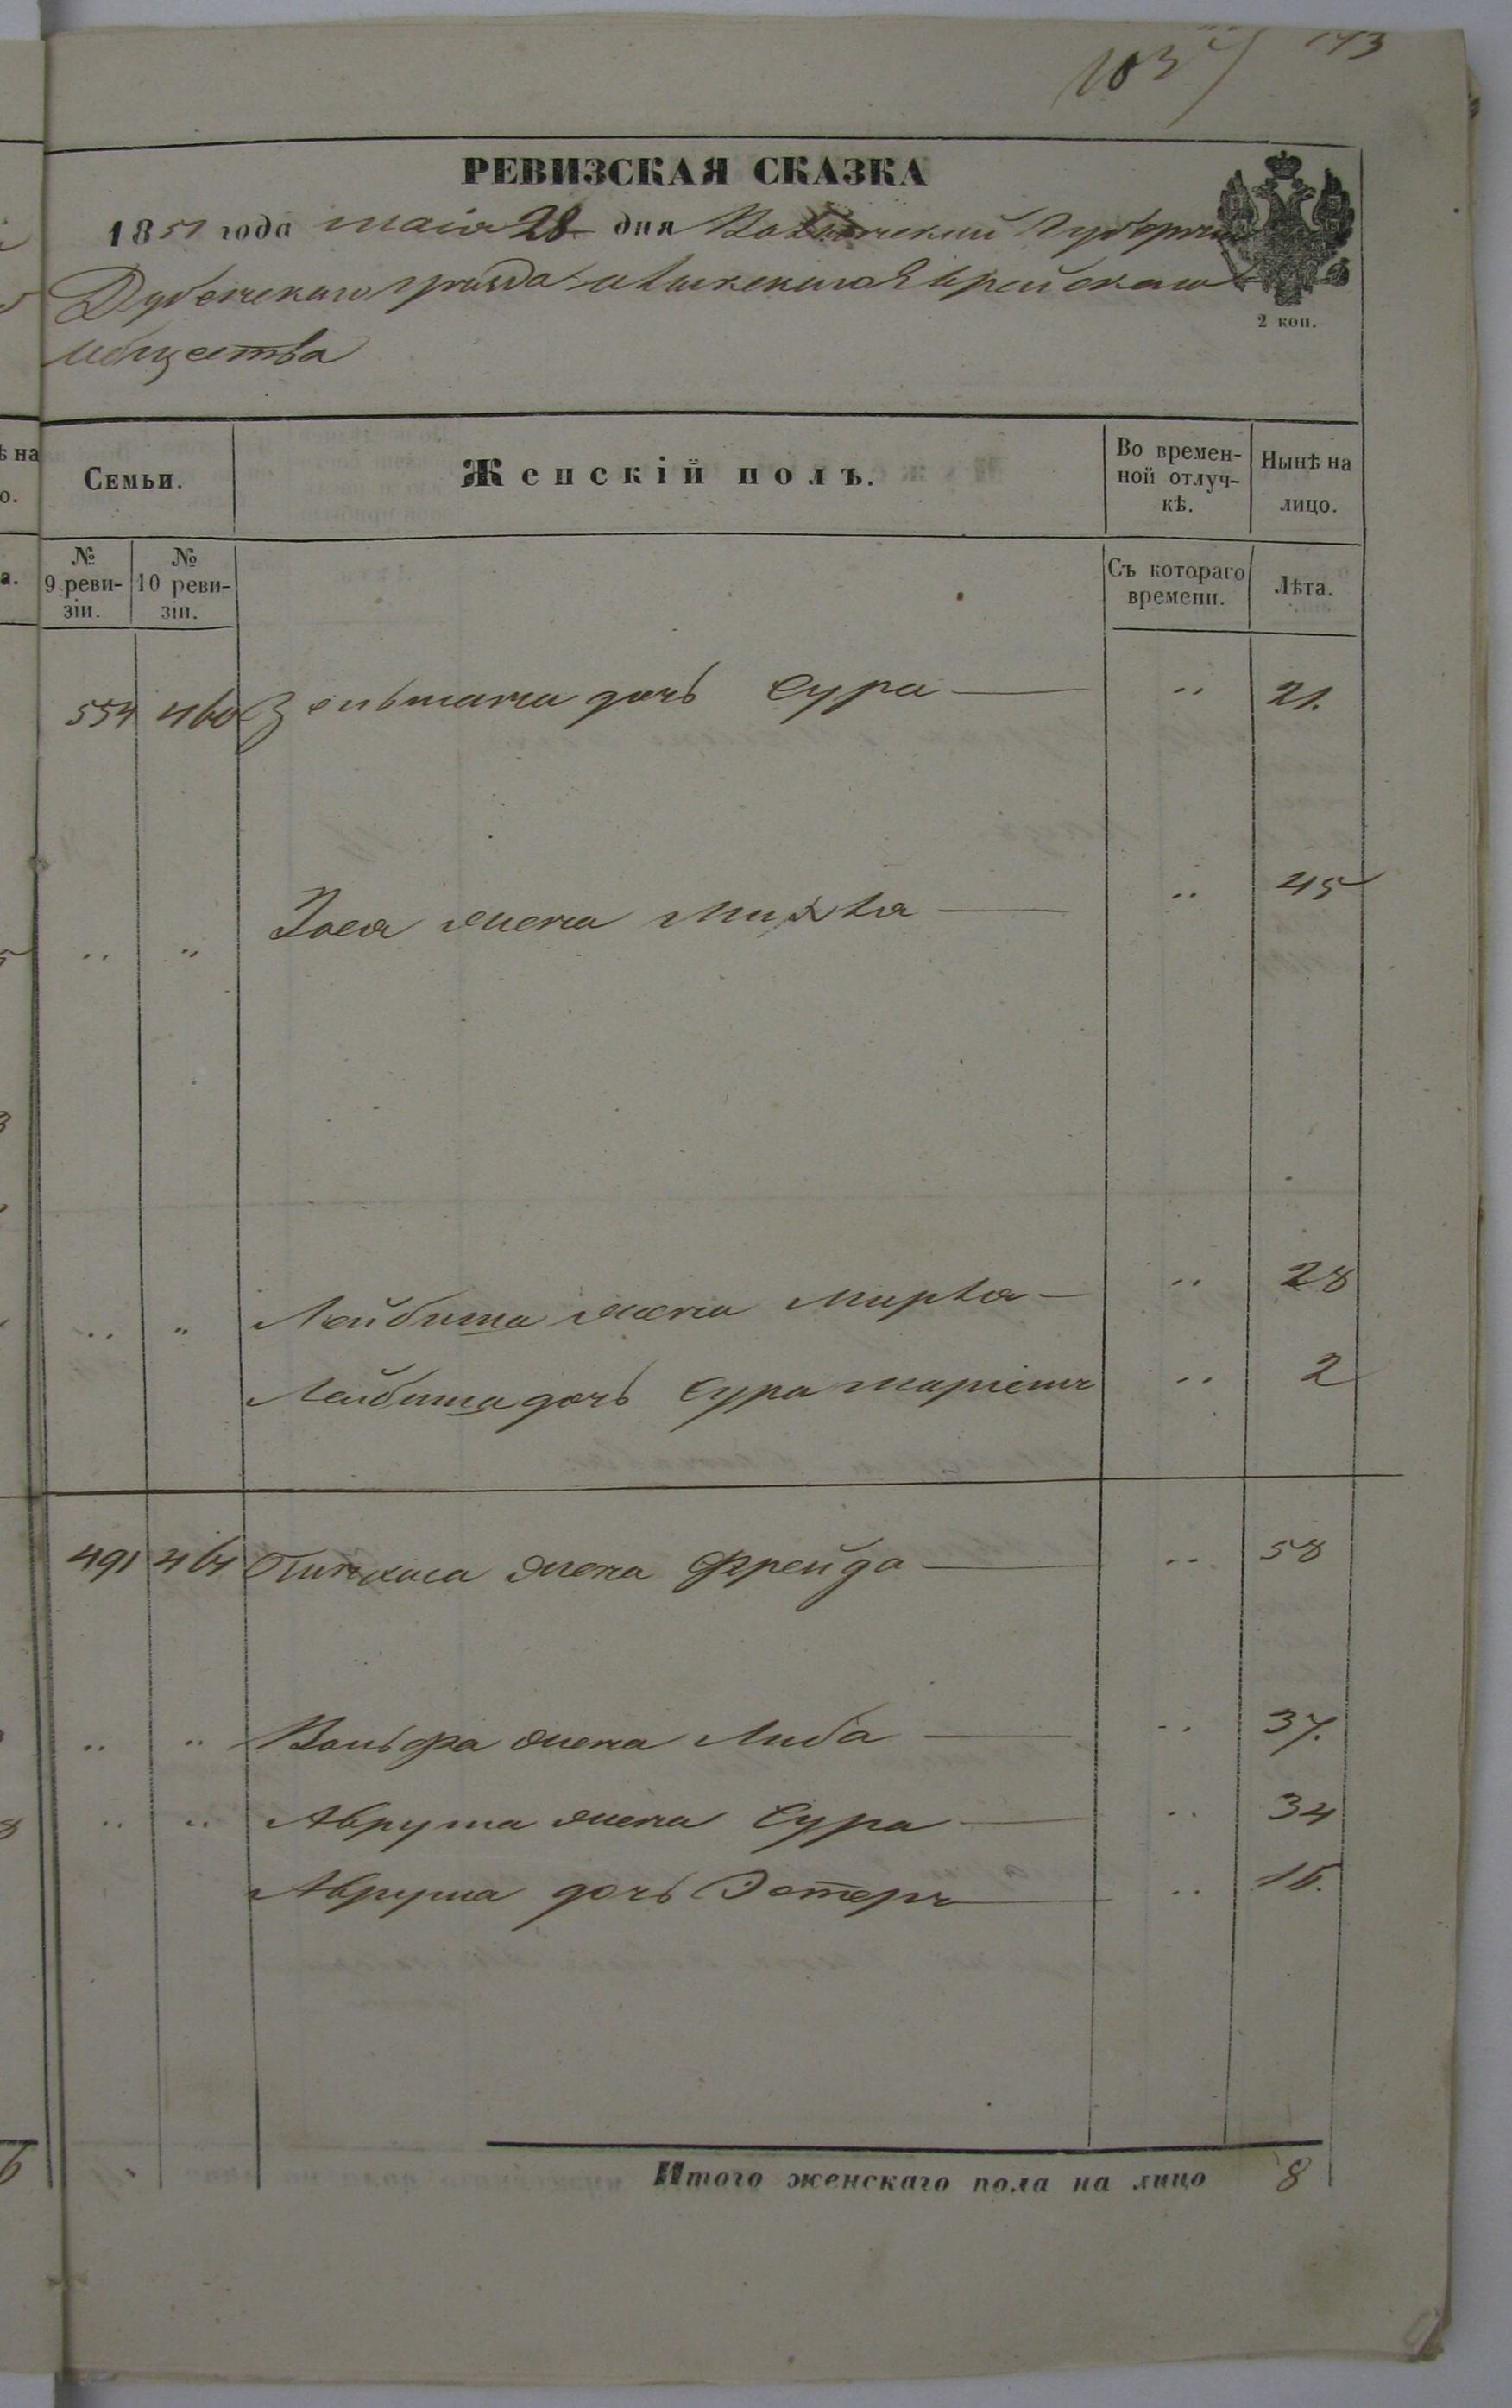 103 173
РЕВИЗСКАЯ СКАЗКА
1851 года маія 28 дня Волынской Губерніи
Дубенскаго Еврейскаго
общества
2 коп.
Семьи. Женскій полъ. Во времен-ной отлуч-кѣ. Нынѣ на лицо.
№ 9 реви-зіи. № 10 реви-зіи. Съ котораго времени. Лѣта.
554 460 Зельмана дочь Сура — " 21.
" " Іося жена — " 45
" " Лейбиша жена Мирка — " 28
Лейбиша дочь Сура " 2
491 461 Пинхаса жена Фрейда — " 58
" " Вольфа жена Либа — " 37.
" " Аврума жена Сура — " 34
Аврума дочь Эстеръ — " 15.
Итого женскаго пола на лицо 8